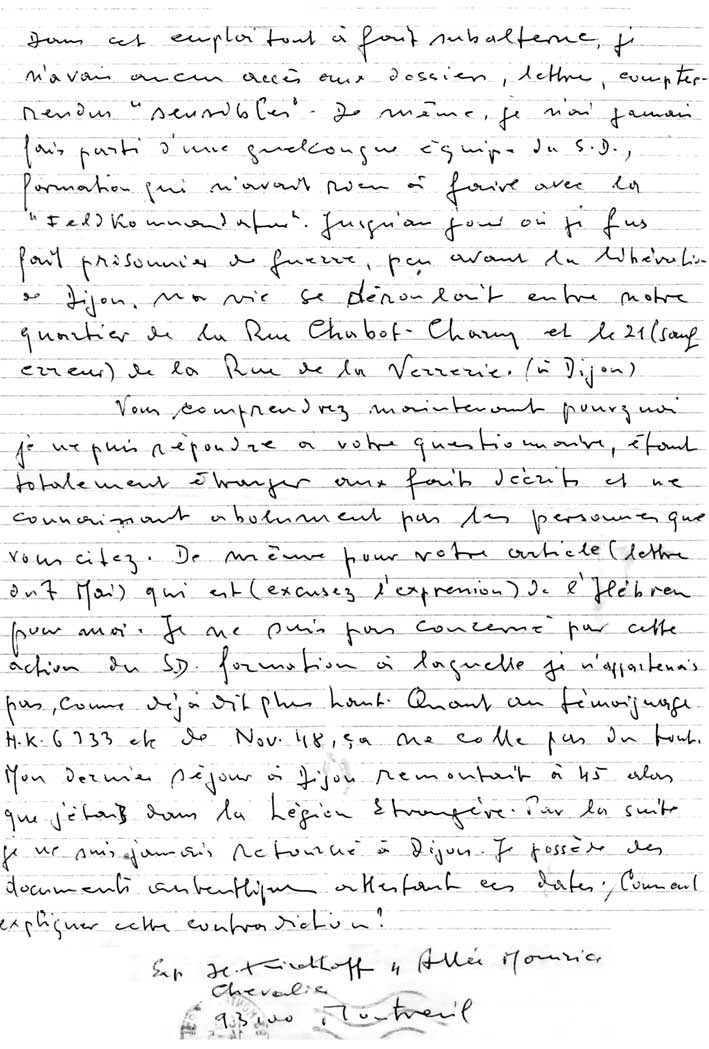 Dans cet emploi tout à fait subalterne, je
n'avais aucun accès aux dossiers, lettre, compter-
rendus "sensibles". De même, je n'ai jamais
fais parti d'une quelconque équipe du S.D.,
formation qui n'avait rien à faire avec la
"Feldkommandatur". Jusqu'au jour où je fus
fait prisonnier de guerre, peu avant la libération
de Dijon, ma vie se déroulait entre notre
quartier de la Rue Chabot-Charny et le 21 (sauf
erreur) de la Rue de la Verrerie. (à Dijon)
Vous comprendrez maintenant pourquoi
je ne puis répondre à votre questionnaire, étant
totalement étranger aux faits décrits et ne
connaissant abolument pas les personnes que
vous citez. De même pour votre article (lettre
du 7 Mai) qui est (excusez l'expression) de l'Hébreu
pour moi. Je ne suis pas concerné par cette
action du SD. formation à laquelle je n'appartenais
pas, comme déjà dit plus haut. Quant au témoignage
H.K. 6733 etc de Nov. 48, ça ne colle pas du tout.
Mon dernier séjour à Dijon remontait à 45 alors
que j'étais dans la Légion Etrangère. Par la suite
je ne suis jamais retourné à Dijon. Je possède des
documents authentiques attestant ces dates. Comment
expliquer cette contradiction?
Exp Kirchhoff Allée Maurice
Chevalier
93100 Montreuil